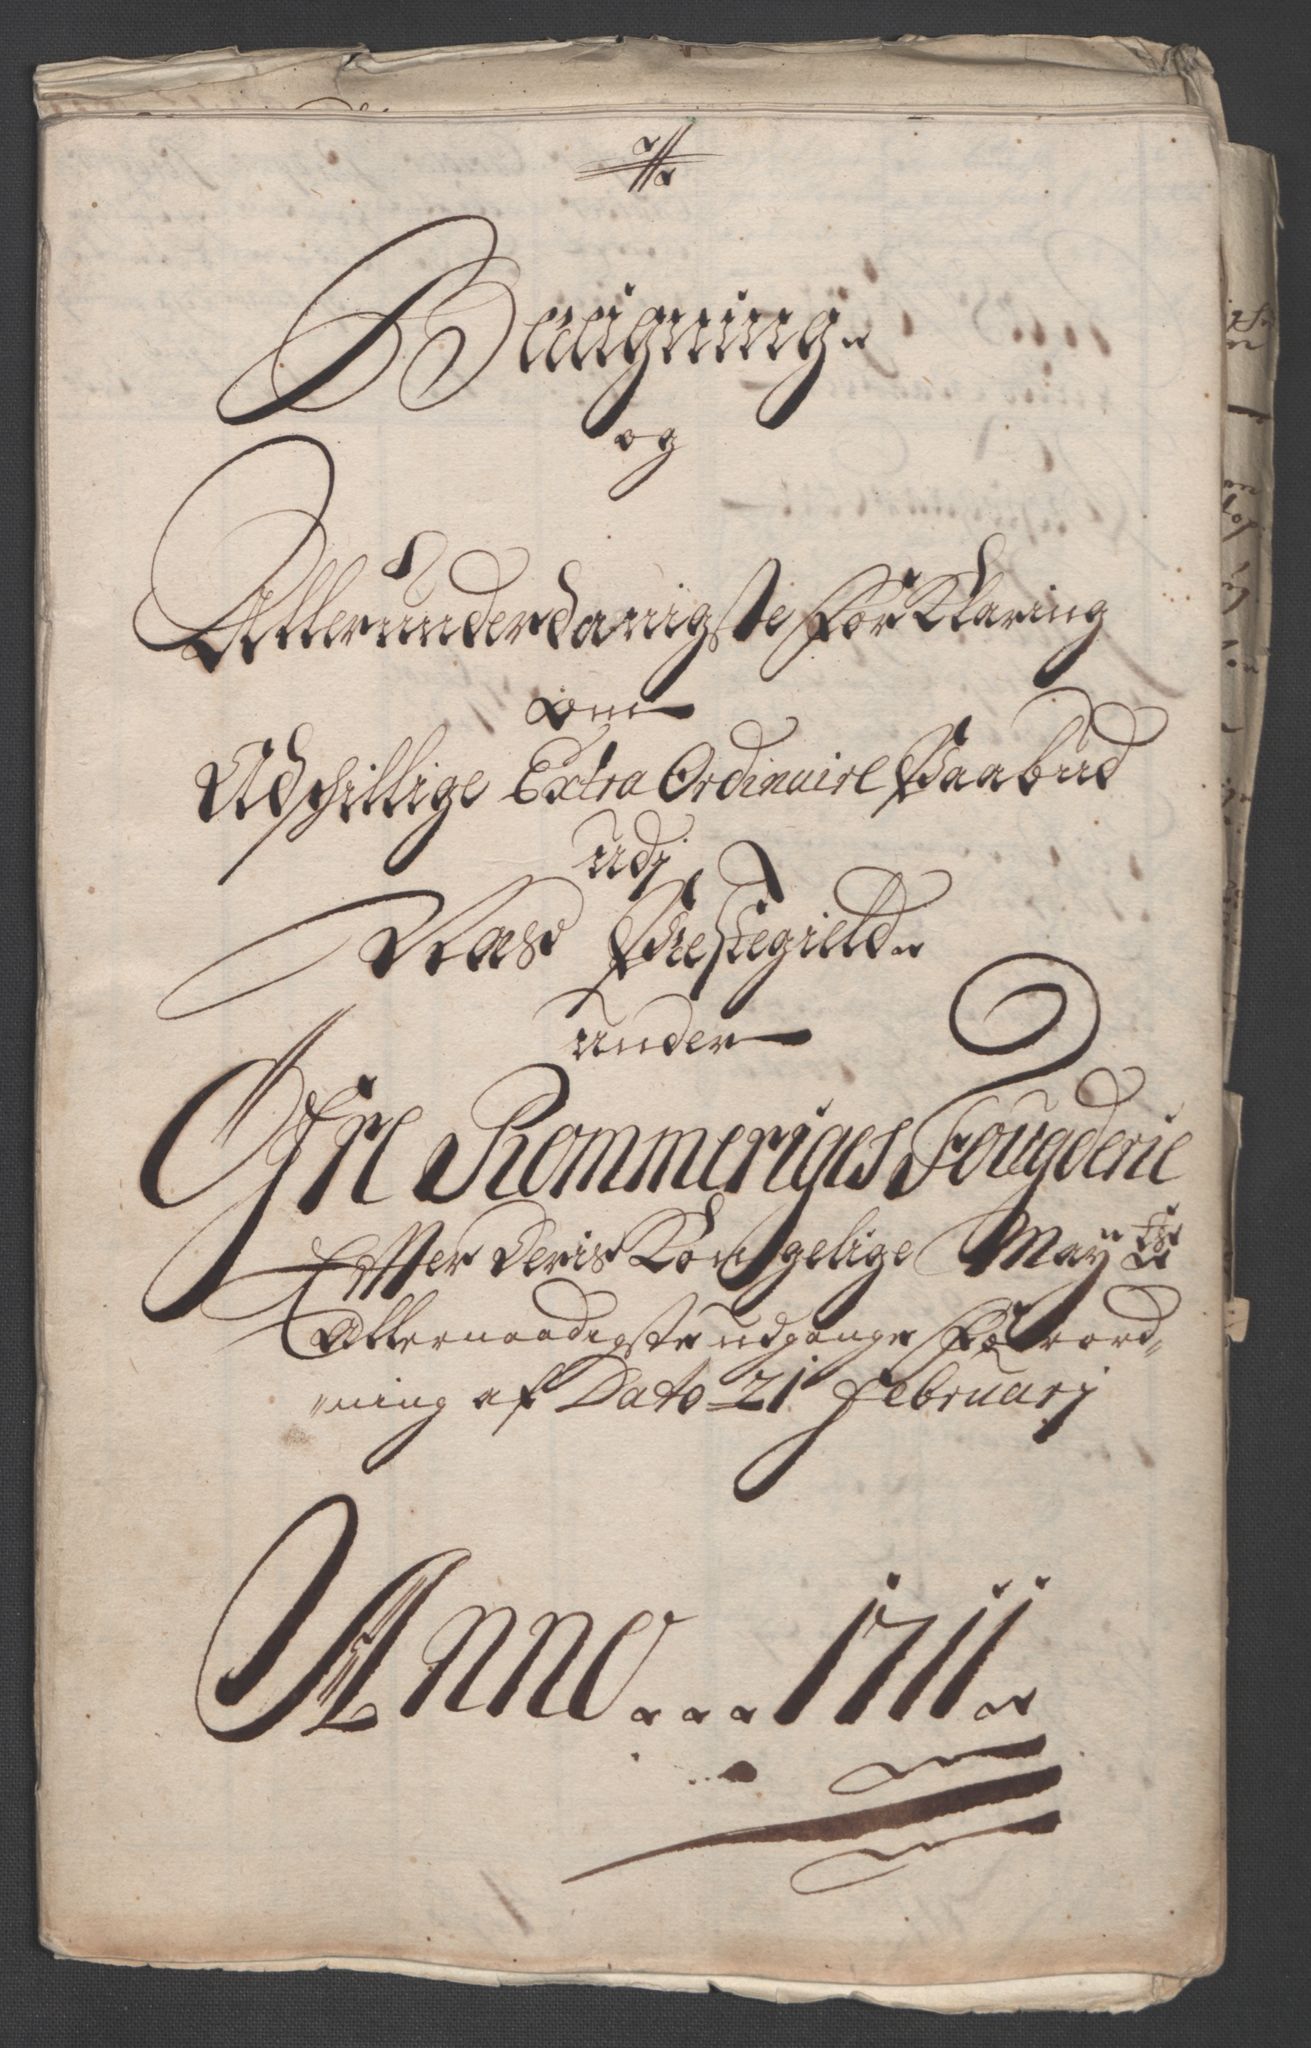 Beregning
og
Allerunderdanigste forklaring
om
Udschillige Extra Ordinaire Paabud
udj
Næss Præstegield
under
Øfre Rommeriges Fougderie
Effter Deris Kongelige Mayts
Allernaadigste udgangne Forord,,
ning af Dato 21 Februarj
Anno 1711